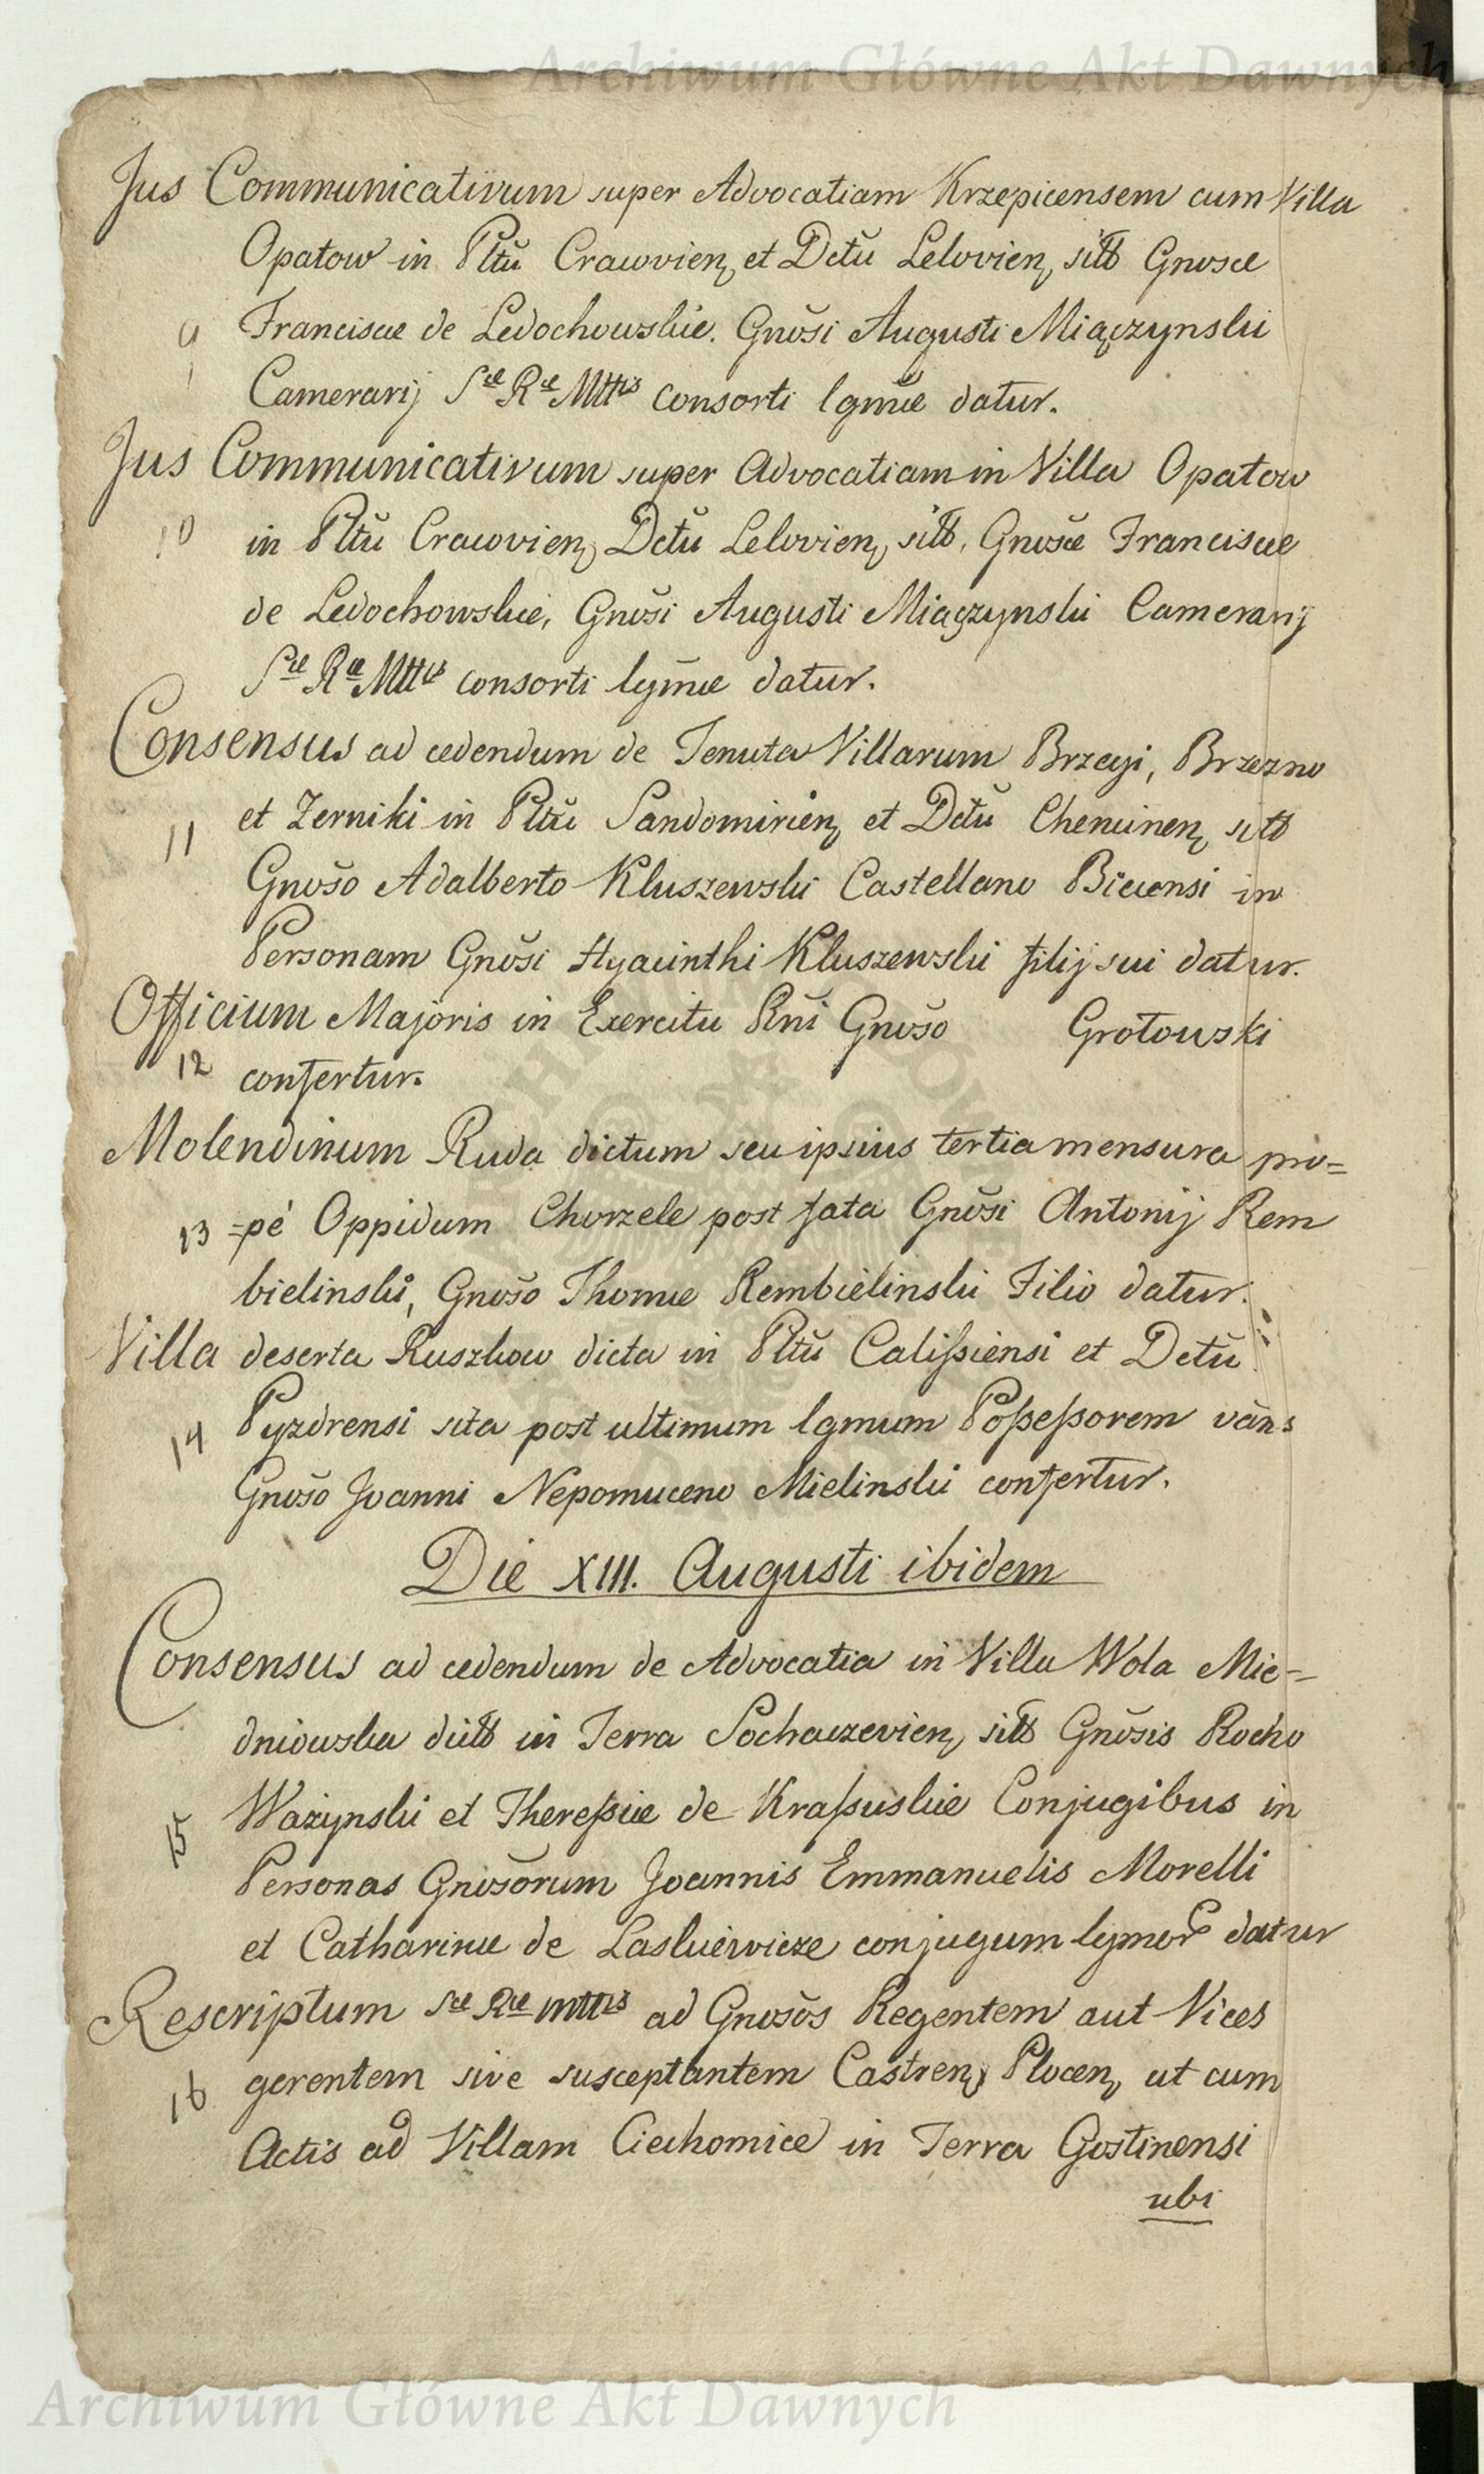 Archiwum Główne Akt Dawnych
Jus Communicativum super Advocatiam Krzepicensem cum Villa
Opatow in Pltũ Cracovien, et Dctũ Lelovien, sitt Gnosæ
9 Franciscæ de Ledochowskie. Gnõsi Augusti Miączynski
Camerarij Sæ Ræ Mttis consorti lgmæ datur.
Jus Communicativum super Advocatiam in Villa Opatow
10 in Pltũ Cracovien, Dctũ Lelovien, sitt, Gnosæ Franciscæ
de Ledochowskie, Gnõsi Augusti Miączynski Camerarij
Sæ Ræ Mttis consorti lgmæ datur.
Consensus ad cedendum de Tenuta Villarum Brzegi, Brzezno
11 et Zerniki in Pltũ Sandomirien, et Dctũ Chencinen, sitt
Gnošo Adalberto Kluszewski Castellano Biecensi in
Personam Gnõsi Hyacinthi Kluszewski filij sui datur.
Officium Majoris in Exercitu Rñi Gnošo Grotowski
12 confertur.
Molendinum Ruda dictum seu ipsius tertia mensura pro=
13 =pé Oppidum Chorzele post fata Gnõsi Antonij Rem
bielinski, Gnošo Thomæ Rembielinski Filio datur.
Villa deserta Ruszkow dicta in Pltũ Calissiensi et Dctũ
14 Pyzdrensi sita post ultimum lgmum Possessorem vãns
Gnošo Joanni Nepomuceno Mielinski confertur.
Die XIII. Augusti ibidem
Consensus ad cedendum de Advocatia in Villa Wola Mie=
dniowska dictt in Terra Sochaczevien, sitt Gnõsis Rocho
15 Ważynski et Theressiæ de Krassuskie Conjugibus in
Personas Gnosõrum Joannis Emmanuelis Morelli
et Catharinæ de Laskiewicze conjugum lgmor datur
Rescriptum Sæ Ræ mttis ad Gnosõs Regentem aut Vices
16 gerentem sive susceptantem Castren, Plocen, ut cum
Actis ad Villam Ciechomice in Terra Gostinensi
ubi
Archiwum Główne Akt Dawnych